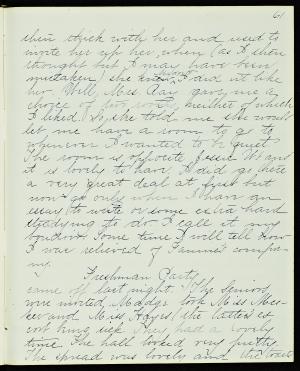 61
then stuck with her and used to
write her up her, when (as I then
thought but I may have been
mistaken) she knew I did not like
her. Well, Mrs. Ray gave me a
choice of two rooms, neither of which
I liked. So she told me she would
let me have a room to go to
whenever I wanted to be quiet.
The room is opposite Jessie and
it is lovely to have. I did go there
a very great deal at first but
now I go only when I have an
essay to write or some extra hard
studying to do. I call it my
Some time I will tell how
I was relieved of Fannie's compa-
ny.
Freshman Party
came off last night. The seniors
were invited. Madge took Miss
and Miss Hayes (the latter's es-
cort being sick. They had a lovely
time. The hall looked very pretty.
The spread was lovely and the toast